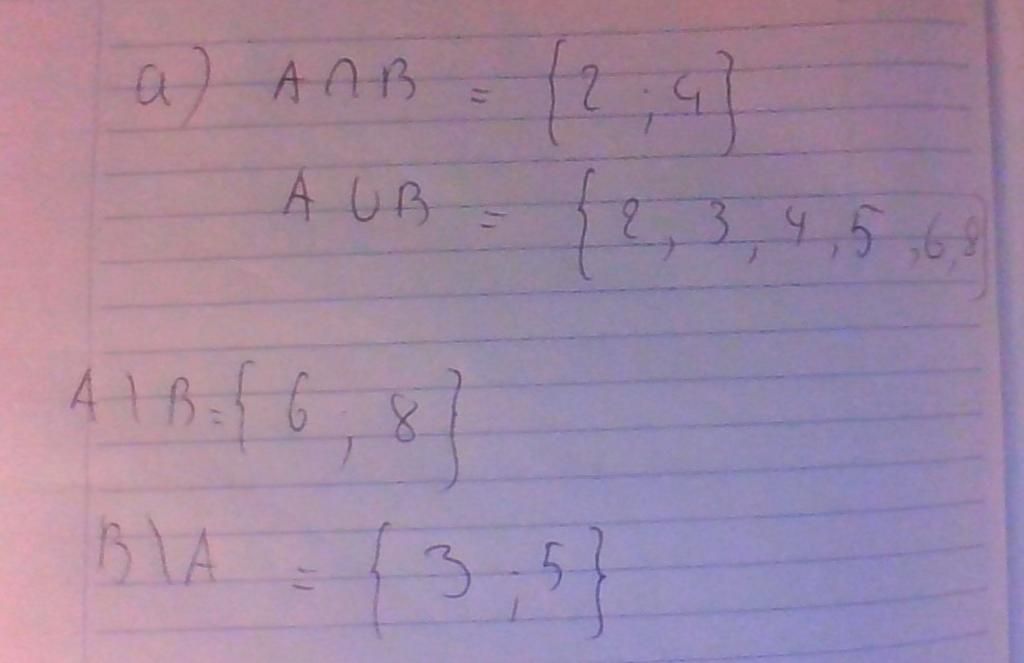 a) A∩B = {2 ; 4}
A∪B = {2, 3, 4, 5, 6, 8}
A \ B = {6 ; 8}
B \ A = {3 ; 5}